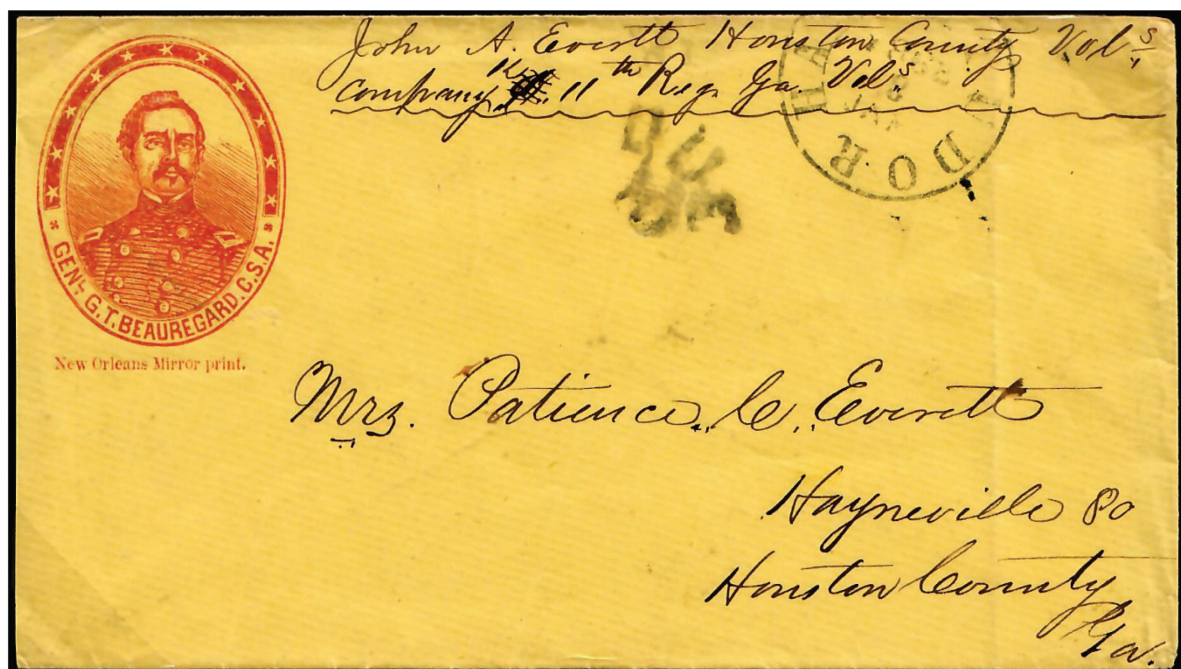 John A. Everett Houston County Vols.
company "K" 11th Reg. Ga. Vols.
DUE
GENL. G. T. BEAUREGARD. C.S.A.
New Orleans Mirror print.
Mrs. Patience. C. Everett
Hayneville Po
Houston County
Ga.